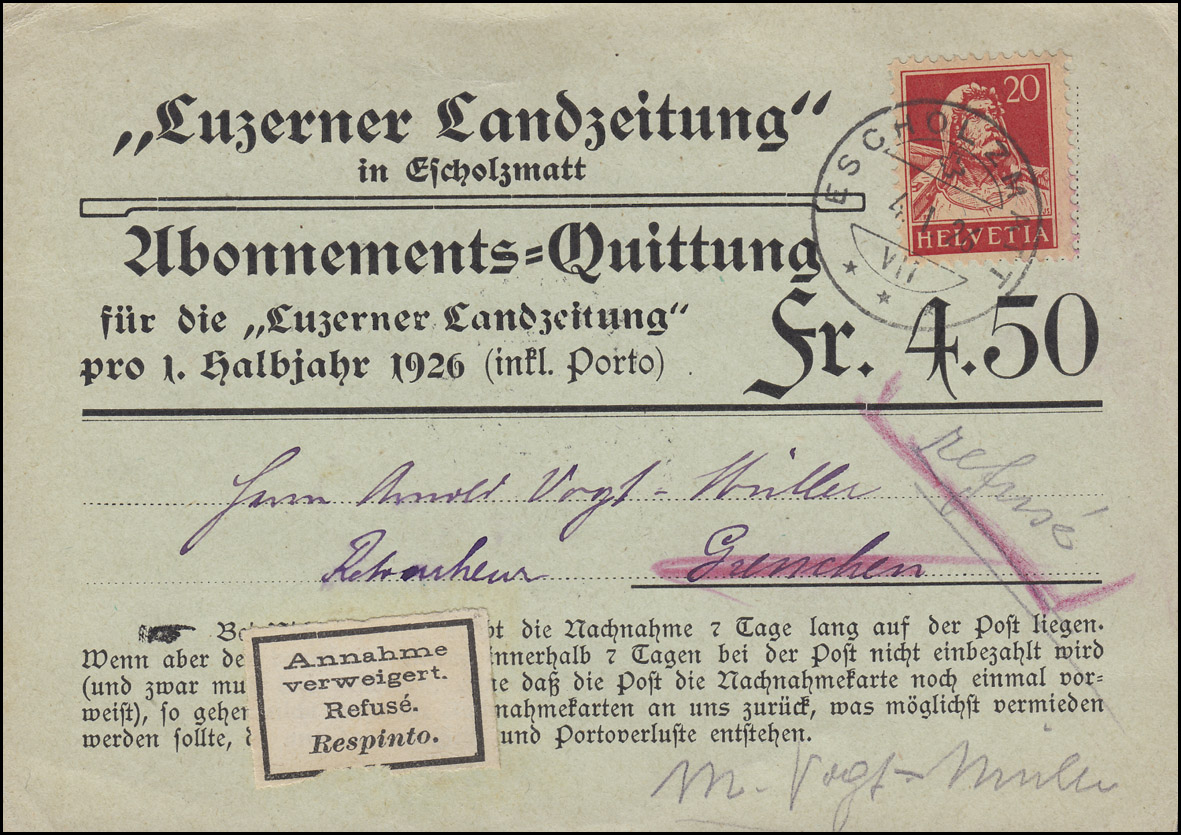 „Luzerner Landzeitung“
in Escholzmatt
20
HELVETIA
ESCHOLZMATT
VII
Abonnements=Quittung
für die „Luzerner Landzeitung“
pro 1. Halbjahr 1926 (inkl. Porto)
Fr. 4.50
refusé
Herrn Arnold Vogt-Müller
Grenchen
bt die Nachnahme 7 Tage lang auf der Post liegen.
Wenn aber de innerhalb 7 Tagen bei der Post nicht einbezahlt wird
(und zwar mu ne daß die Post die Nachnahmekarte noch einmal vor=
weist), so gehen nahmekarten an uns zurück, was möglichst vermieden
werden sollte, und Portoverluste entstehen.
Annahme
verweigert.
Refusé.
Respinto.
M. Vogt=Müller